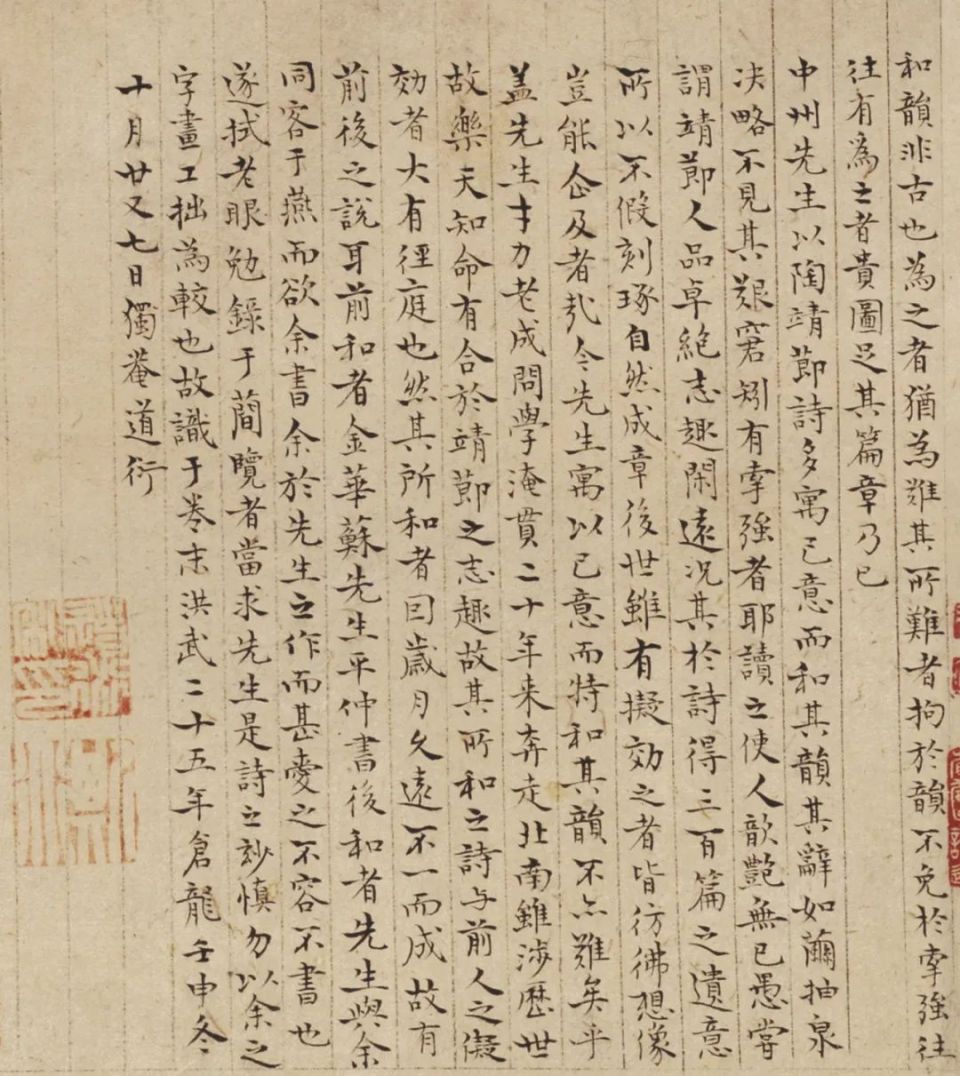 和韻非古也為之者猶為難其所難者拘於韻不免於牽強往
往有為之者貴圖足其篇章乃已
中州先生以陶靖節詩多寓己意而和其韻其辭如繭抽泉
决略不見其艱窘矧有牽強者耶讀之使人歆艷無已愚嘗
謂靖節人品卓絶志趣閑遠況其於詩得三百篇之遺意
所以不假刻琢自然成章後世雖有擬効之者皆彷彿想像
豈能企及者㢤今先生寓以己意而特和其韻不亦難矣乎
盖先生才力老成問學淹貫二十年来奔走北南雖涉歷世
故樂天知命有合於靖節之志趣故其所和之詩与前人之儗
効者大有徑庭也然其所和者回歲月久遠不一而成故有
前後之說耳前和者金華蘇先生平仲書後和者先生與余
同客于燕而欲余書余於先生之作而甚愛之不容不書也
遂拭老眼勉錄于蕳覽者當求先生是詩之玅慎勿以余之
字畫工拙為較也故識于卷末洪武二十五年倉龍壬申冬
十月廿又七日獨菴道衍